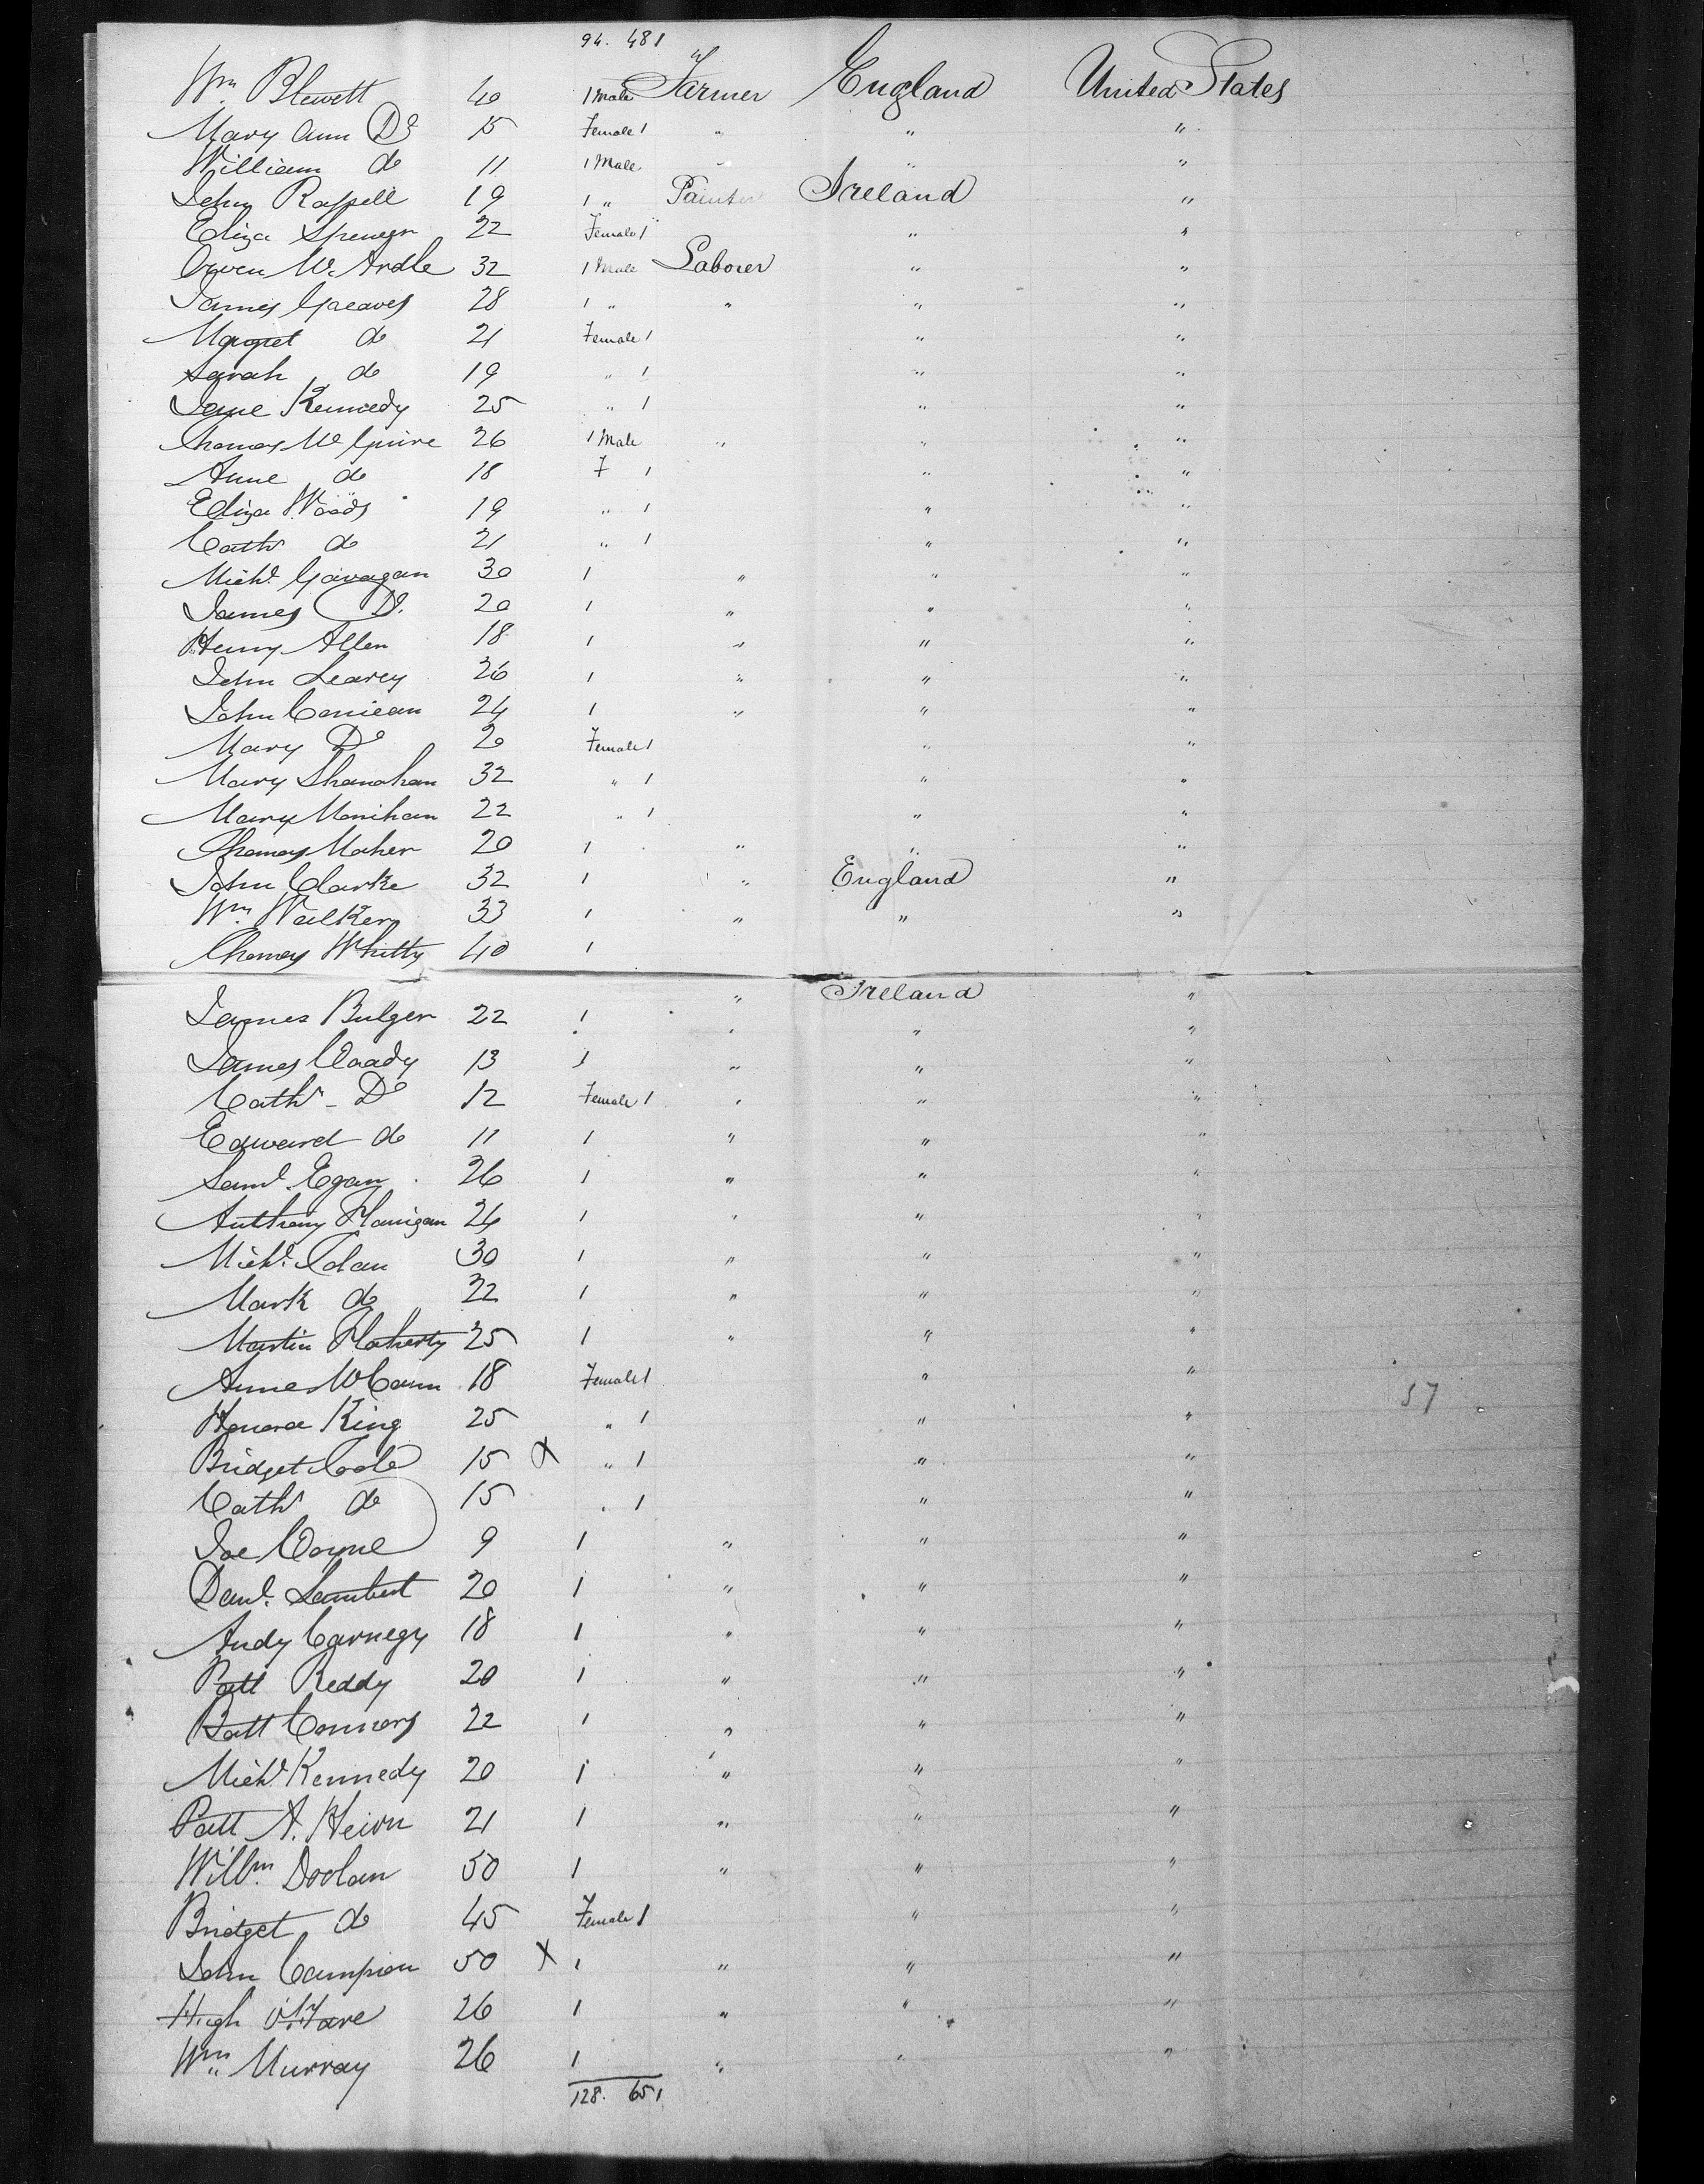 94. 481
Wm Blewett 40 1 Male Farmer England United States
Mary Ann Do 15 Female 1 " " "
William do 11 1 Male " " "
John 19 1 " Painter Ireland "
Eliza 22 Female 1 " "
Owen McArdle 32 1 Male Laborer " "
James Greaves 28 1 " " " "
Margret do 21 Female 1 " "
Sarah do 19 " 1 " "
Jane Kennedy 25 " 1 " "
Thomas McGuire 26 1 Male " " "
Anne do 18 F 1 " "
Eliza Woods 19 " 1 " "
Cath do 21 " 1 " "
Michl. Gavagan 30 1 " " "
James Do. 20 1 " " "
Henry Allen 18 1 " " "
John Leavey 26 1 " " "
John 24 1 " " "
Mary Do 20 Female 1 " "
Mary Shanahan 32 " 1 " "
Mary Monihan 22 " 1 " "
Thomas Maher 20 1 " " "
John Clarke 32 1 " England "
Wm. Walker 33 1 " " "
Thomas Whitty 40 1
" Ireland "
James Bulger 22 1 " " "
James Coady 13 1 " " "
Cath Do 12 Female 1 " " "
Edward do 11 1 " " "
Saml. Egan 26 1 " " "
Anthony Flanigan 24 1 " " "
Michl. Tolan 30 1 " " "
Mark do 22 1 " " "
Martin Flaherty 25 1 " " "
Anne McCann 18 Female 1 " "
57
Honora King 25 " 1 " "
Bridget Toole 15 X " 1 " "
Cath do 15 " 1 " "
Joe Coyne 9 1 " " "
Danl. Lambert 20 1 " " "
Andy Carnegy 18 1 " " "
Patt Reddy 20 1 " " "
Batt Connors 22 1 " " "
Michl Kennedy 20 1 " " "
Patt A. Heirn 21 1 " " "
Willm. Doolan 50 1 " " "
Bridget do 45 Female 1 " "
John Campion 50 X 1 " " "
Hugh O'Hare 26 1 " " "
Wm Murray 26 1 " " "
128. 651